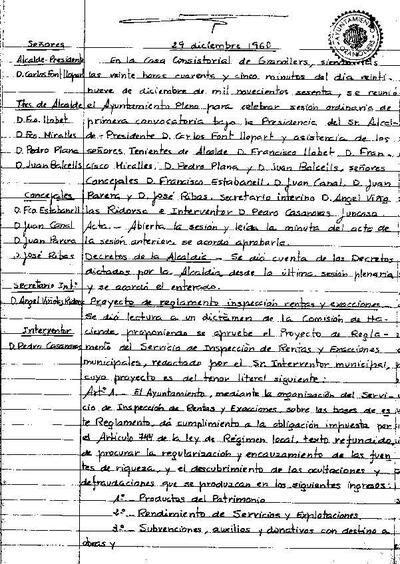 AYUNTAMIENTO
GRANOLLERS
Señores
Alcalde-Presidente
D. Carlos Font Llopart
Ttes. de Alcalde
D. Fco. Llobet
D. Fco. Miralles
D. Pedro Plana
D. Juan Balcells
Concejales
D. Fco Estabanell
D. Juan Canal
D. Juan Parera
D. José Ribas
Secretario Int:
D. Angel Viñolas Ridorsa
Interventor
D. Pedro Casanovas
29 diciembre 1960
En la Casa Consistorial de Granollers, siendo
las veinte horas cuarenta y cinco minutos del día veinti
nueve de diciembre de mil novecientos sesenta, se reunió
el Ayuntamiento Pleno para celebrar sesión ordinaria de
primera convocatoria bajo la Presidencia del Sr. Alcal-
de-Presidente D. Carlos Font Llopart y asistencia de los
señores Tenientes de Alcalde D. Francisco Llobet, D. Fran-
cisco Miralles, D. Pedro Plana y D. Juan Balcells, señores
Concejales D. Francisco Estabanell, D. Juan Canal, D. Juan
Parera y D. José Ribas. Secretario interino D. Angel Viño
las Ridorsa e Interventor D. Pedro Casanovas Juncosa
Acta.- Abierta la sesión y leída la minuta del acta de
la sesión anterior, se acordó aprobarla.
Decretos de la Alcaldía.- Se dió cuenta de los Decretos
dictados por la Alcaldía desde la última sesión plenaria
y se acordó el enterado.
Proyecto de reglamento inspección rentas y exacciones.-
Se dió lectura a un dictámen de la Comisión de Ha-
cienda proponiendo se apruebe el Proyecto de Regla-
mento del Servicio de Inspección de Rentas y Exacciones
municipales, redactado por el Sr. Interventor municipal,
cuyo proyecto es del tenor literal siguiente:
Artº 1.- El Ayuntamiento, mediante la organización del Servi-
cio de Inspección de Rentas y Exacciones, sobre las bases de es
te Reglamento, dá cumplimiento a la obligación impuesta por
el Artículo 744 de la ley de Régimen local, texto refundido,
de procurar la regularización y encauzamiento de las fuen
tes de riqueza, y el descubrimiento de las ocultaciones y
defraudaciones que se produzcan en los siguientes ingresos:
1º.- Productos del Patrimonio
2º.- Rendimiento de Servicios y Explotaciones.
3º.- Subvenciones, auxilios y donativos con destino a
obras y